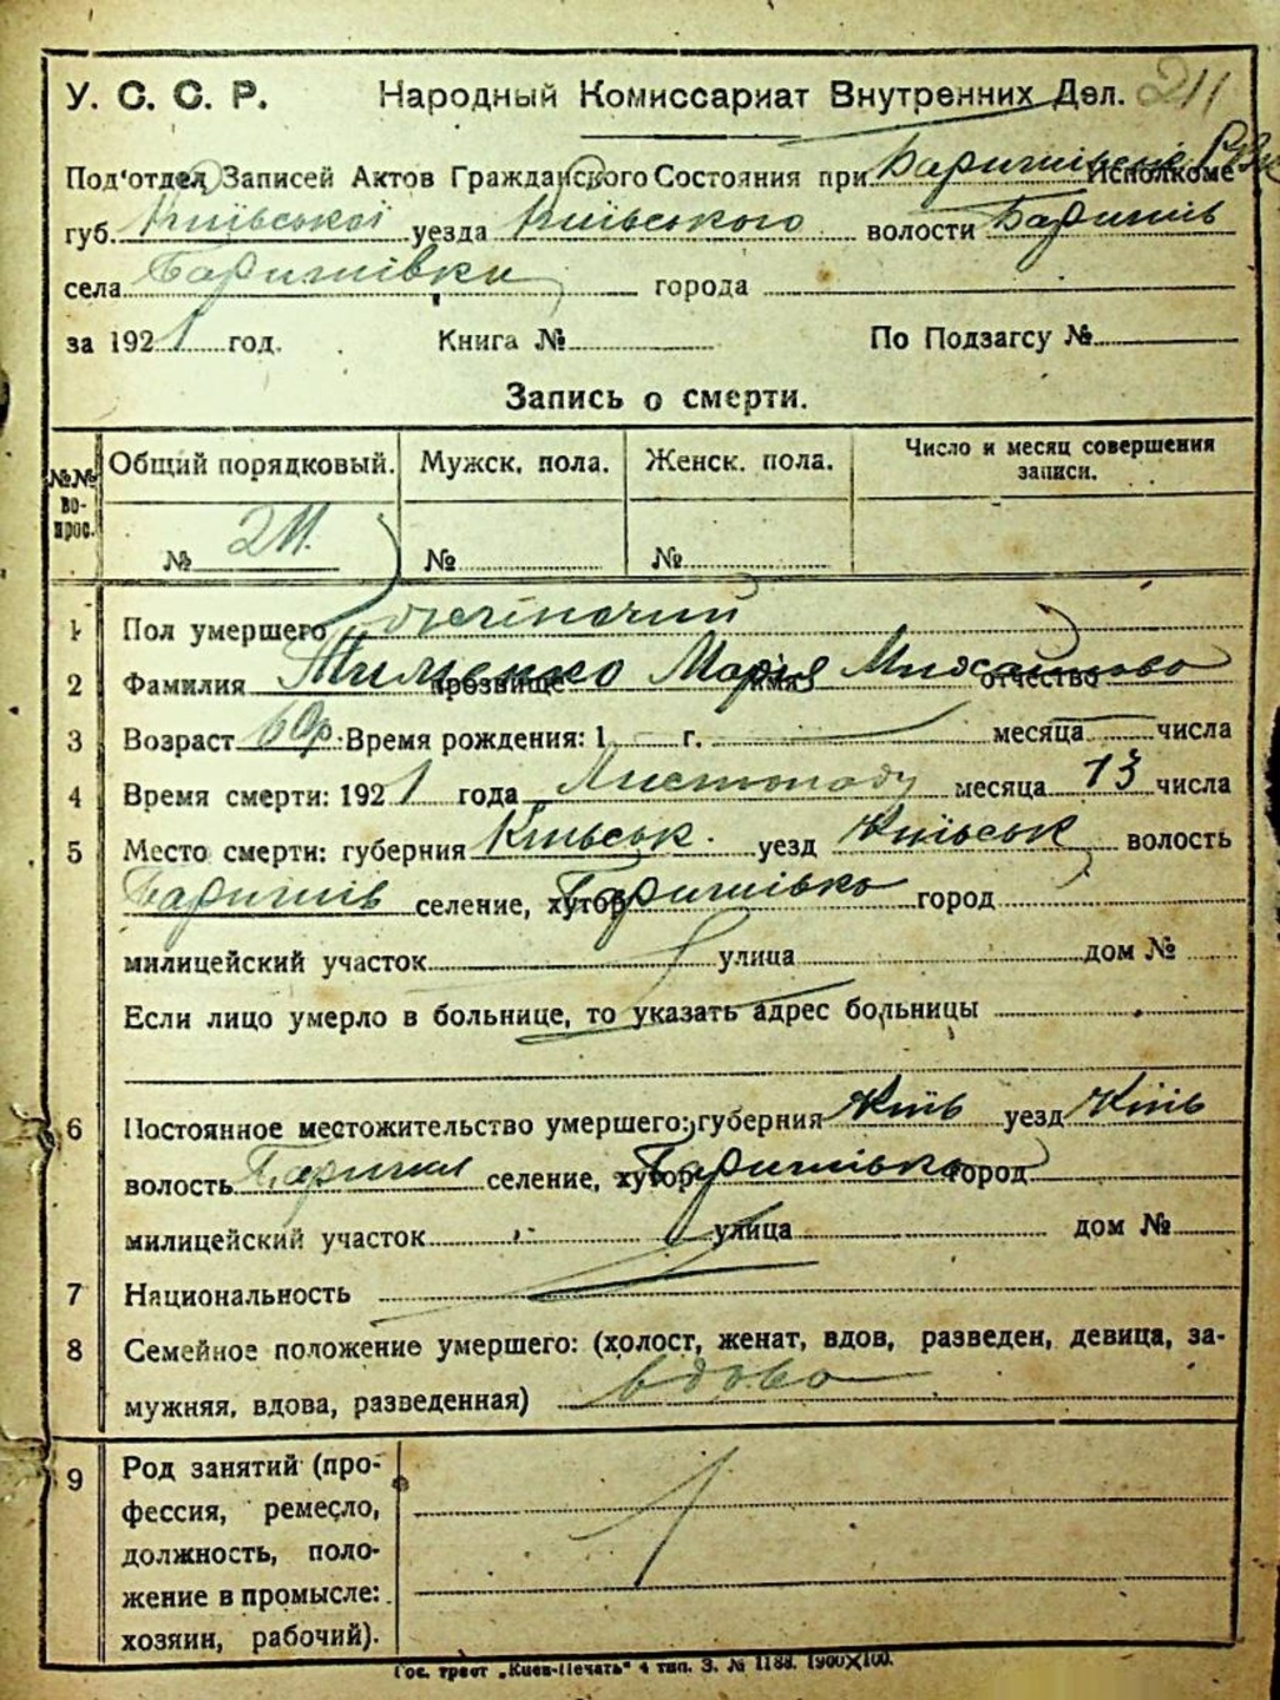 У. С. С. Р. Народный Комиссариат Внутренних Дел. 211
Под'отдел Записей Актов Гражданского Состояния при Исполкоме
губ. Київської уезда Київського волости Баришів
села Баришівки города
за 1921 год. Книга № По Подзагсу №
Запись о смерти.
№№ во-прос. Общий порядковый. Мужск. пола. Женск. пола. Число и месяц совершения записи.
№ 211. № №
1 Пол умершего жіночий
2 Фамилия Тименко прозвище Марія имя отчество
3 Возраст 60р. Время рождения: 1 г. месяца числа
4 Время смерти: 1921 года Листопаду месяца 13 числа
5 Место смерти: губерния Київськ. уезд Київськ волость
Баришів селение, хутор Баришівка город
милицейский участок улица дом №
Если лицо умерло в больнице, то указать адрес больницы
6 Постоянное местожительство умершего: губерния Київ уезд Київ
волость селение, хутор Баришівка город
милицейский участок улица дом №
7 Национальность
8 Семейное положение умершего: (холост, женат, вдов, разведен, девица, за-
мужняя, вдова, разведенная) вдова
9 Род занятий (про-
фессия, ремесло,
должность, поло-
жение в промысле:
хозяин, рабочий).
Гос. трест „Киев-Печать“ 4 тип. З. № 1188. 1900X100.